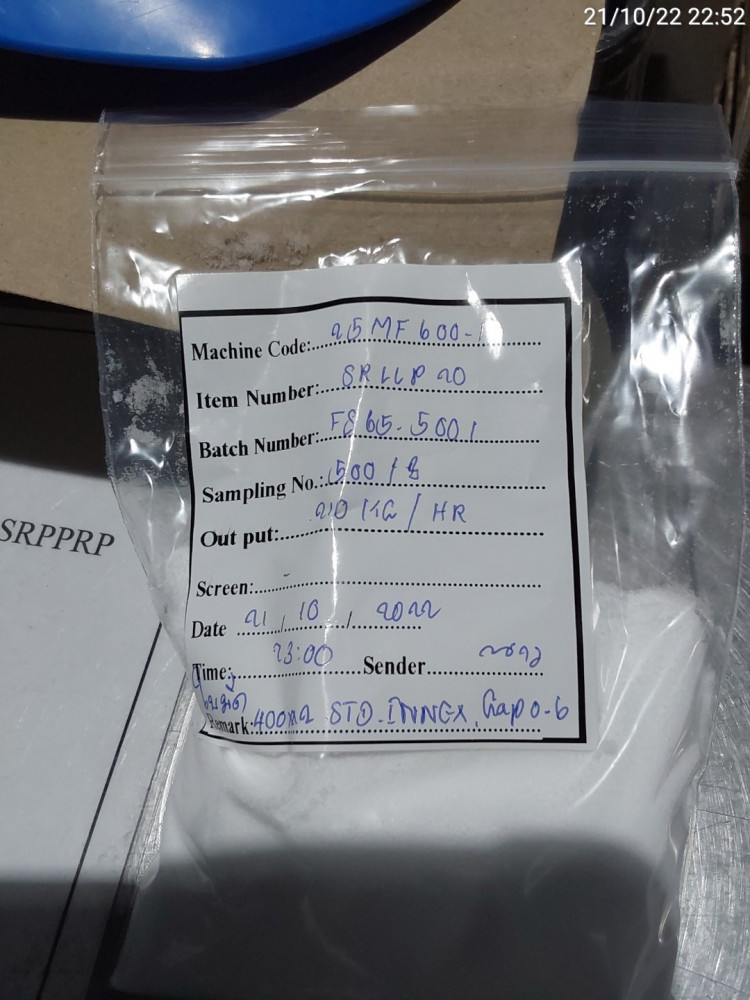 21/10/22 22:52
Machine Code: 25MF600-1
Item Number: SRLLP 20
Batch Number: FS65-5001
Sampling No.: 500/8
Out put: 20 KG/HR
SRPPRP
Screen: -
Date 21/10/2022
Time: 23:00 Sender
Remark: 400 STD. Gap 0-6